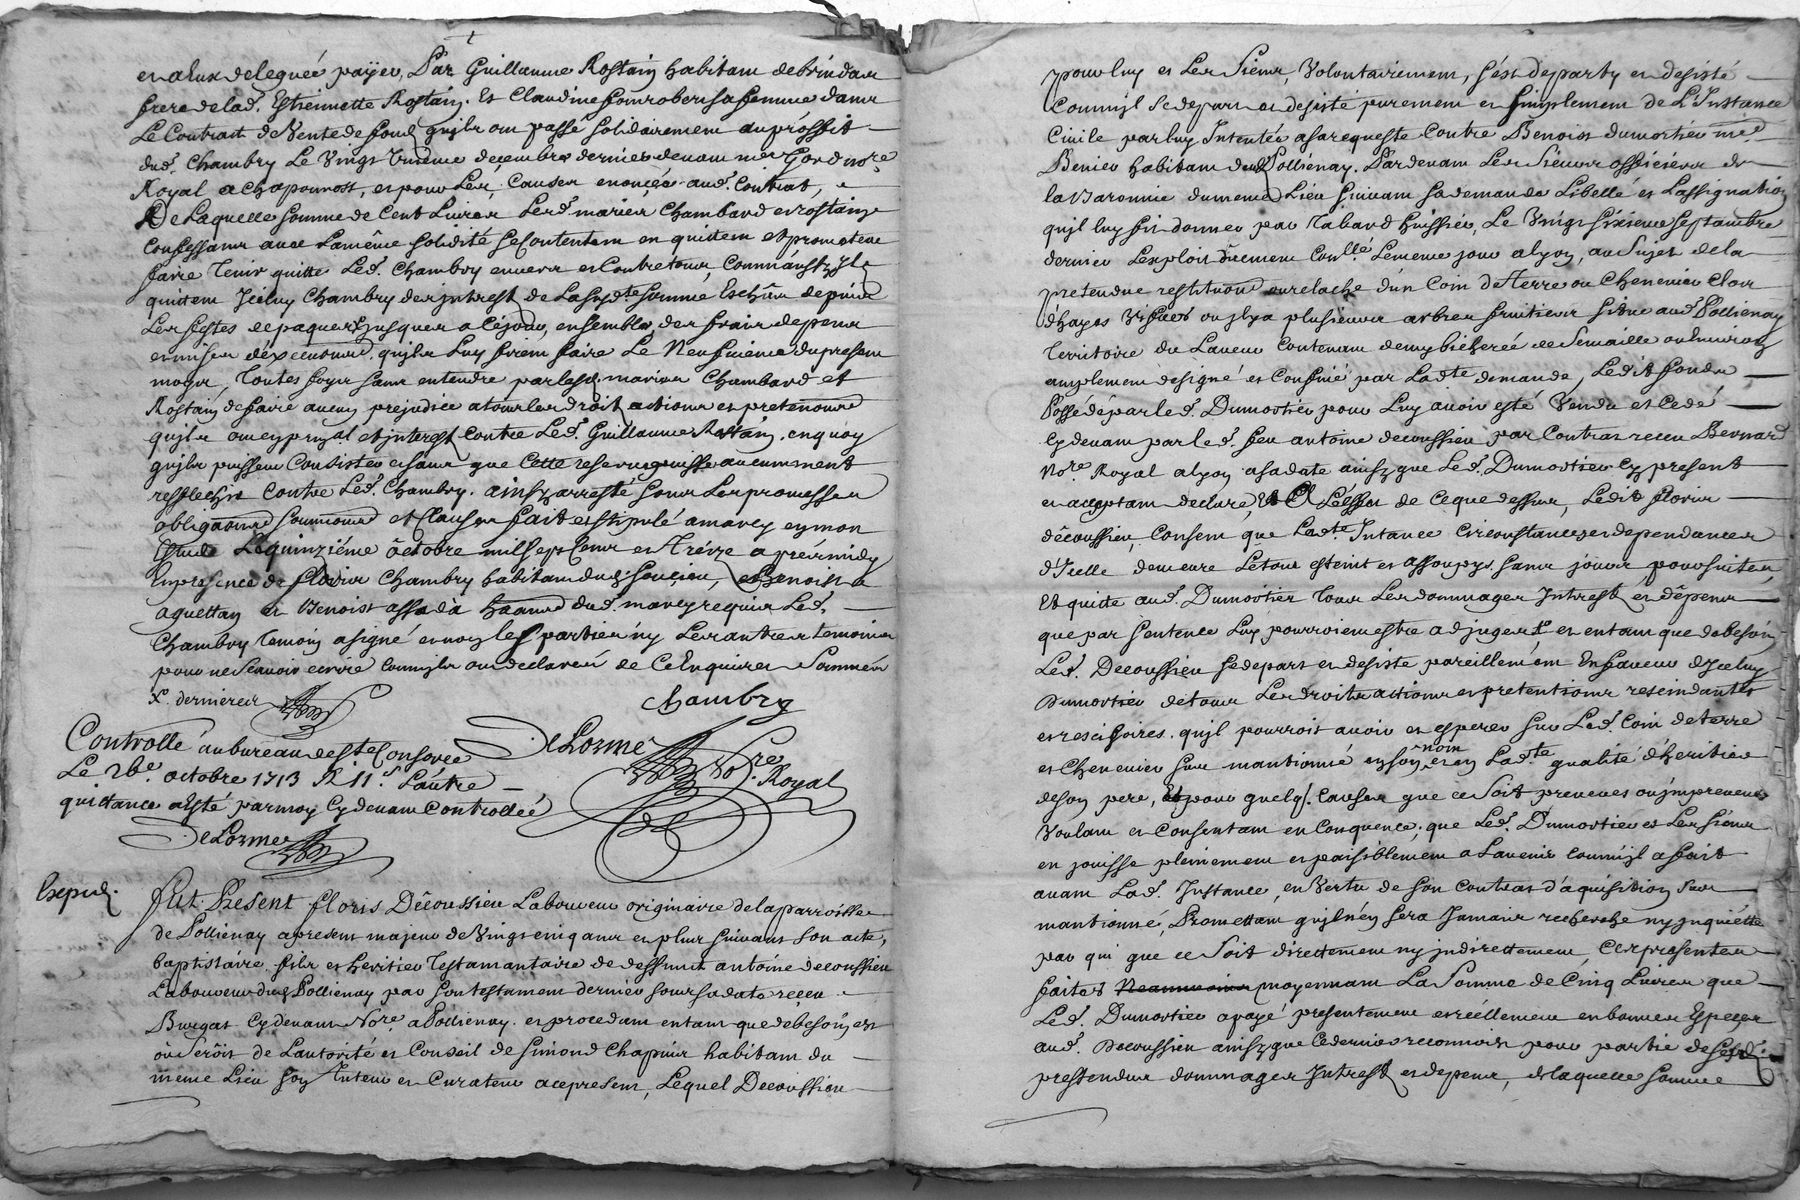 en aeux deleguéé payer, Par Guillaume Rostaing habitant de brindas
frere de lad. Estiennette Rostaing. Et Claudine sa femme dans
Le Contract de Vente de fond quils ont passé solidairement au proffit
dud. Chambry Le Vingt troisieme décembre dernier devant me Gord nore
Royal a Chaponnost, et pour Les Causes enoncéés aud. Contrat,
De Laquelle somme de Cent Livres Lesd. mariés Chambard et rostaing
Confessans avec La même solidité se Contentent en quittent et promettent
faire Tenir quitte Led. Chambry envers et Contre tous, Comm'aussy ils
quittent Iceluy Chambry des intrest de La susdte somme Eschûs depuis
Les festes de paques jusques a Cejourd, ensemble des frais depens
et mises déxecutions quils Luy firent faire Le Neufvieme du present
moys, Toutes foys sans entendre par lesd. mariés Chambard et
Rostaing de faire aucun prejudice a tous les droits actions et pretentions
quils ont en pnpal et interest Contre Led. Guillaume Rostaing. en quoy
quils puissent Consister et sans que Cette reserve puisse aucunement
reflechir Contre Led. Chambry. ainsy arresté sous Les promesses
obligaons soumions et Clauses fait et stipulé a marcy en mon
Estude Le quinziéme octobre mil sept Cens et Tréize apres midy
En presence de floris Chambry habitant dud. soucieu, et Benoist
aquettan et Benoist assada dud. marcy requis Led.
Chambry temoin a signé et non les parties ny Les autres temoins
pour ne Scavoir ecrire Comm'ils ont declaré de Ce Enquis et Sommés
X. dernieres
Chambry
DeLorme Nore Royal
Controllé au bureau de Ste Consorce
Le 26e. octobre 1713 R 11s. L'autre
quittance a esté par moy Cy devant Controlléé
DeLorme
Expid.
Fut Present floris Découssieu Laboureur originaire de la parroisse
de Pollienay a present majeur de Vingt cinq ans et plus suivant son acte
baptistaire. fils et heritier Testamantaire de deffunct antoine decoussieu
Laboureur dud. Pollienay par son testament dernier sous sa date receu
Burgat Cy devant Nore a Pollienay. et procedant en tant que de besoin est
où Serôit de Lautorité et Conseil de Simond Chapuis habitant du
meme Lieu son Tuteur et Curateur ace present, Lequel Decoussieu
pour luy et Les Siens, Volontairement, s'est departy et desisté
Comm'il se depart et desiste purement et simplement de L'Instance
Civile par luy Intentéé a sa requeste Contre Benoist dumortier
Benier habitant dud. Pollienay. Pardevant Les Sieurs officiers de
la Baronnie du meme Lieu suivant sa demande Libellé et Lassignation
quil luy fit donner par Tabard huissier, Le Vingt sixieme septambre
dernier Lexploit dûement Conllé Le meme jour a lyon, au sujet de la
pretendue restitution ou relache d'un Coin de terre ou Chenevier Clos
d'hayes Vifves ou il y a plusieurs arbres fruitiers situé aud. Pollienay
Territoire du Laveur Contenant demy bicheréé de Semaille ou environ
amplement designé et Confiné par Ladte demande, Ledit fonds
Possédé par led. Dumortier pour Luy avoir esté Vendu et Cedé
Cy devant par led. feu antoine decoussieu par Contrat receu Bernard
Nore Royal a lyon a sa date ainsy que Led. Dumortier Cy present
et acceptant declare, Et A L'éffet de Ce que dessus, Ledit floris
découssieu, Consent que Ladte Intance Circonstances et dependances
d'Icelle demeure Létout esteint et assoupy. sans jouir poursuites,
Et quitte aud. Dumortier tous Les dommages Intrest et dêpens
que par Sentence Luy pourroient estre adjugés et entant que de besoin
Led. Decoussieu se depart et desiste pareillement En faveur d'Iceluy
Dumortier de tous Les droits actions et pretentions rescindantes
et rescisoires. qu'il pourroit avoir et esperer sur Led. Coin de terre
et Chenevier sus mantionné en son nom et en Ladte qualité d'heritier
de son pere, Et pour quelq. Causes que ce Soit preveues où impreveues
Voulant et Consentant en Conquence, que Led. Dumortier et Les siens
en jouisse pleinement et paisiblement a Lavenir Comm'il a fait
avant Lad. Instance, en Vertu de son Contrat d'aquisition sus
mantionné, Promettant quil n'en sera Jamais recherché ny inquiétté
par qui que ce Soit directtement ny jndirecttement, Ces presentes
faites Neanmoins moyennant La Somme de Cinq Livres que
Led. Dumortier a payé presentement et réellement en bonnes Especes
aud. Decoussieu ainsy que Cedernier reconnoit pour partie desesd.
prettendus dommages Intrest et depens, de laquelle somme